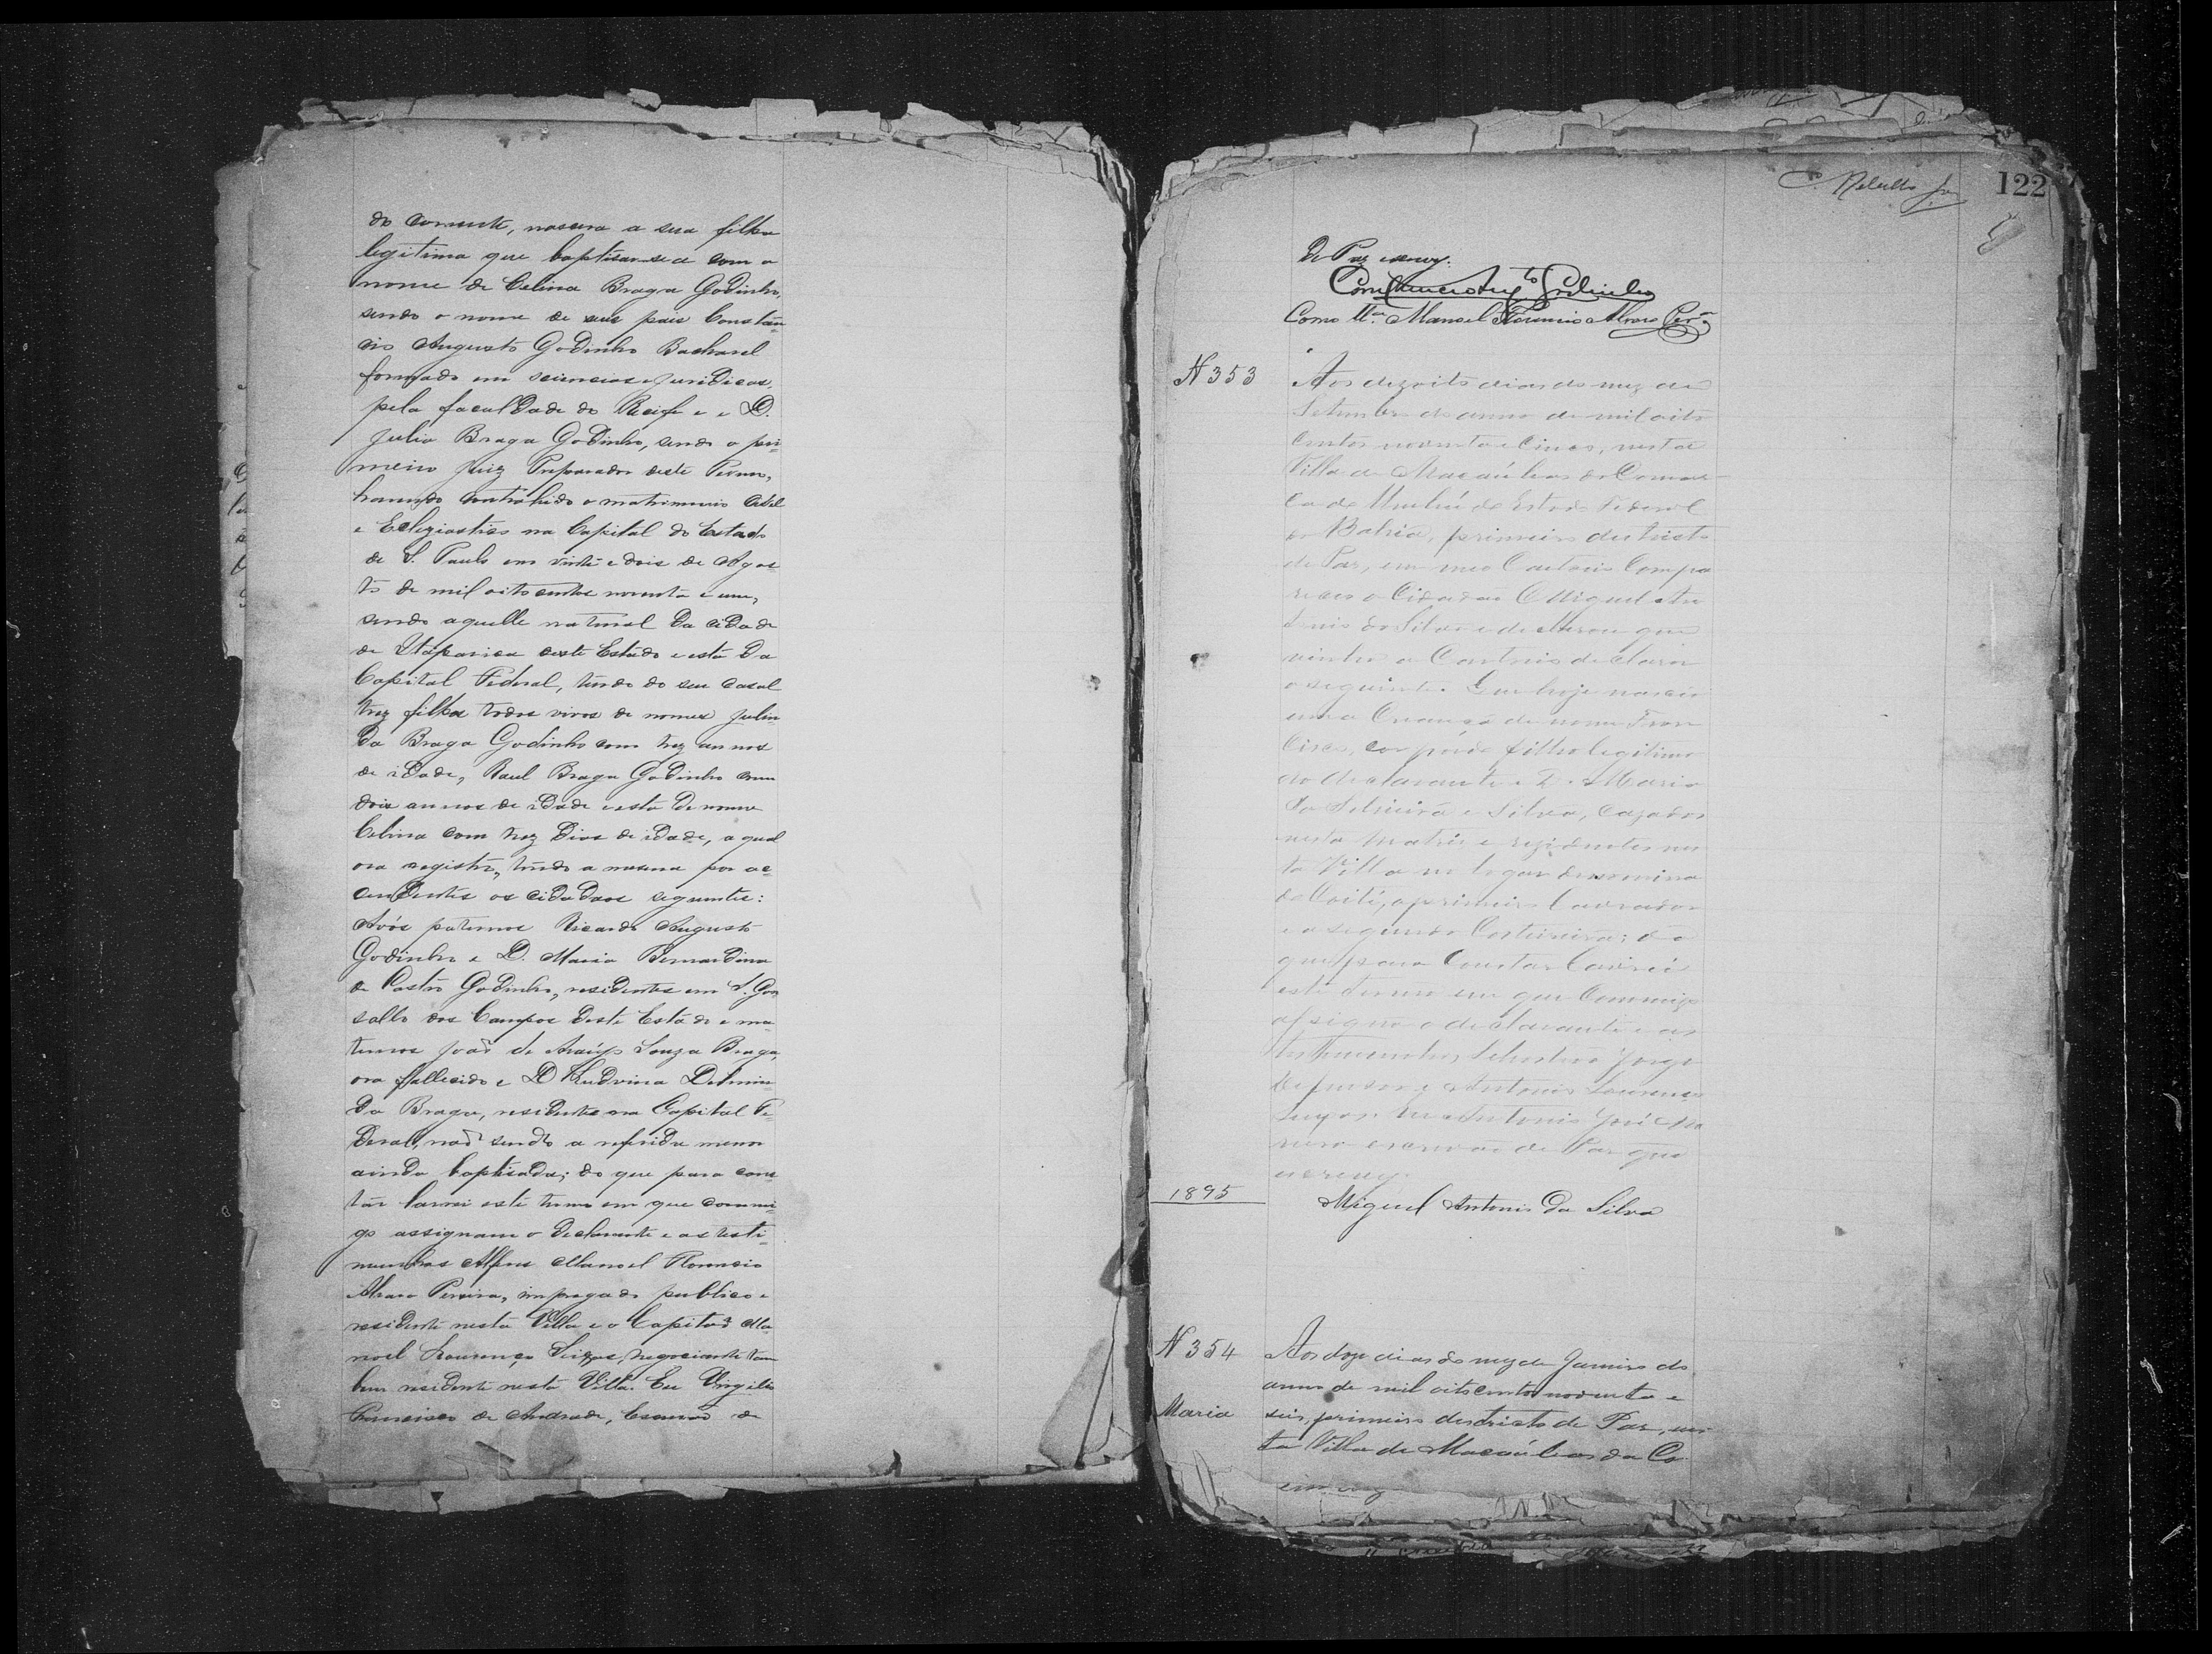 do corrente, nascera a sua filha
legitima que baptisar-se-a com o
nome de Celina Braga Godinho,
sendo o nome de seus pais Constan-
cio Augusto Godinho Bacharel
formado em sciencias juridicas,
pela faculdade do Recife e D.
Julia Braga Godinho, sendo o pri-
meiro Juiz Preparador deste Termo,
havendo contrahido o matrimonio Civil
e Eclesiastico na Capital do Estado
de S. Paulo em vinte e dois de Agos-
to de mil oitocentos noventa e um,
sendo aquelle natural da cidade
de Itaparica deste Estado e esta da
Capital Federal, tendo do seu casal
trez filhos todos vivos de nomes Julin-
da Braga Godinho com trez annos
de idade, Raul Braga Godinho com
dois annos de idade e esta de nome
Celina com trez dias de idade, a qual
ora registro, tendo a mesma por as-
cendentes os cidadaos seguintes:
Avós paternos Ricardo Augusto
Godinho e D. Maria Bernardina
de Castro Godinho, residentes em S. Gon
sallo dos Campos deste Estado e ma-
ternos João de Araujo Souza Braga,
ora fallecido e D. Ludvina Delmin-
da Braga, residente na Capital Fe-
deral, não sendo a referida menor
ainda baptisada; do que para cons-
tar lavrei este termo em que commi-
go assignam o declarante e as testi-
munhas Alferes Manoel Florencio
Alvares Pereira, impregado publico e
residente nesta Villa e o Capitão Ma-
noel Lourenço Seixas, negociante tam
bem residente nesta Villa. Eu Virgilio
Francisco de Andrade, Escrivão de
122
de Paz escrevy.
Constancio Augto Godinho
Como Ta. Manoel Florencio Alvares Pera
N 353
Aos dezoito dias do mez de
Setembro do anno de mil oito
centos noventa e cinco, nesta
Villa de Macaúbas da Comar
ca de Urubú do Estado Federal
da Bahia, primeiro districto
de Paz, em meo Cartorio Compa
receo o Cidadão Miguel An
tonio da Silva e declarou que
vinha a Cartorio declarar
o seguinte. Que hoje nasceo
uma Criança de nome Fran
cisco, cor parda filho legitimo
do declarante e D. Maria
da Silveira e Silva, casados
nesta matriz e rezidentes nes
ta Villa no logar denomina
do Coité, o primeiro Lavrador
e a segunda Costureira; do
que para Constar lavrei
este termo em que Commigo
assigna o declarante e as
testemunhas Sebastião Jorge
e Antonio Lourenço
Seixas. Eu Antonio José
escrivão de Paz que
escrevy.
1895
Miguel Antonio da Silva
N 354
Maria
Aos doze dias do mez de Janeiro do
anno de mil oitocentos noventa e
seis, primeiro districto de Paz, nes
ta Villa de Macaúbas da Co